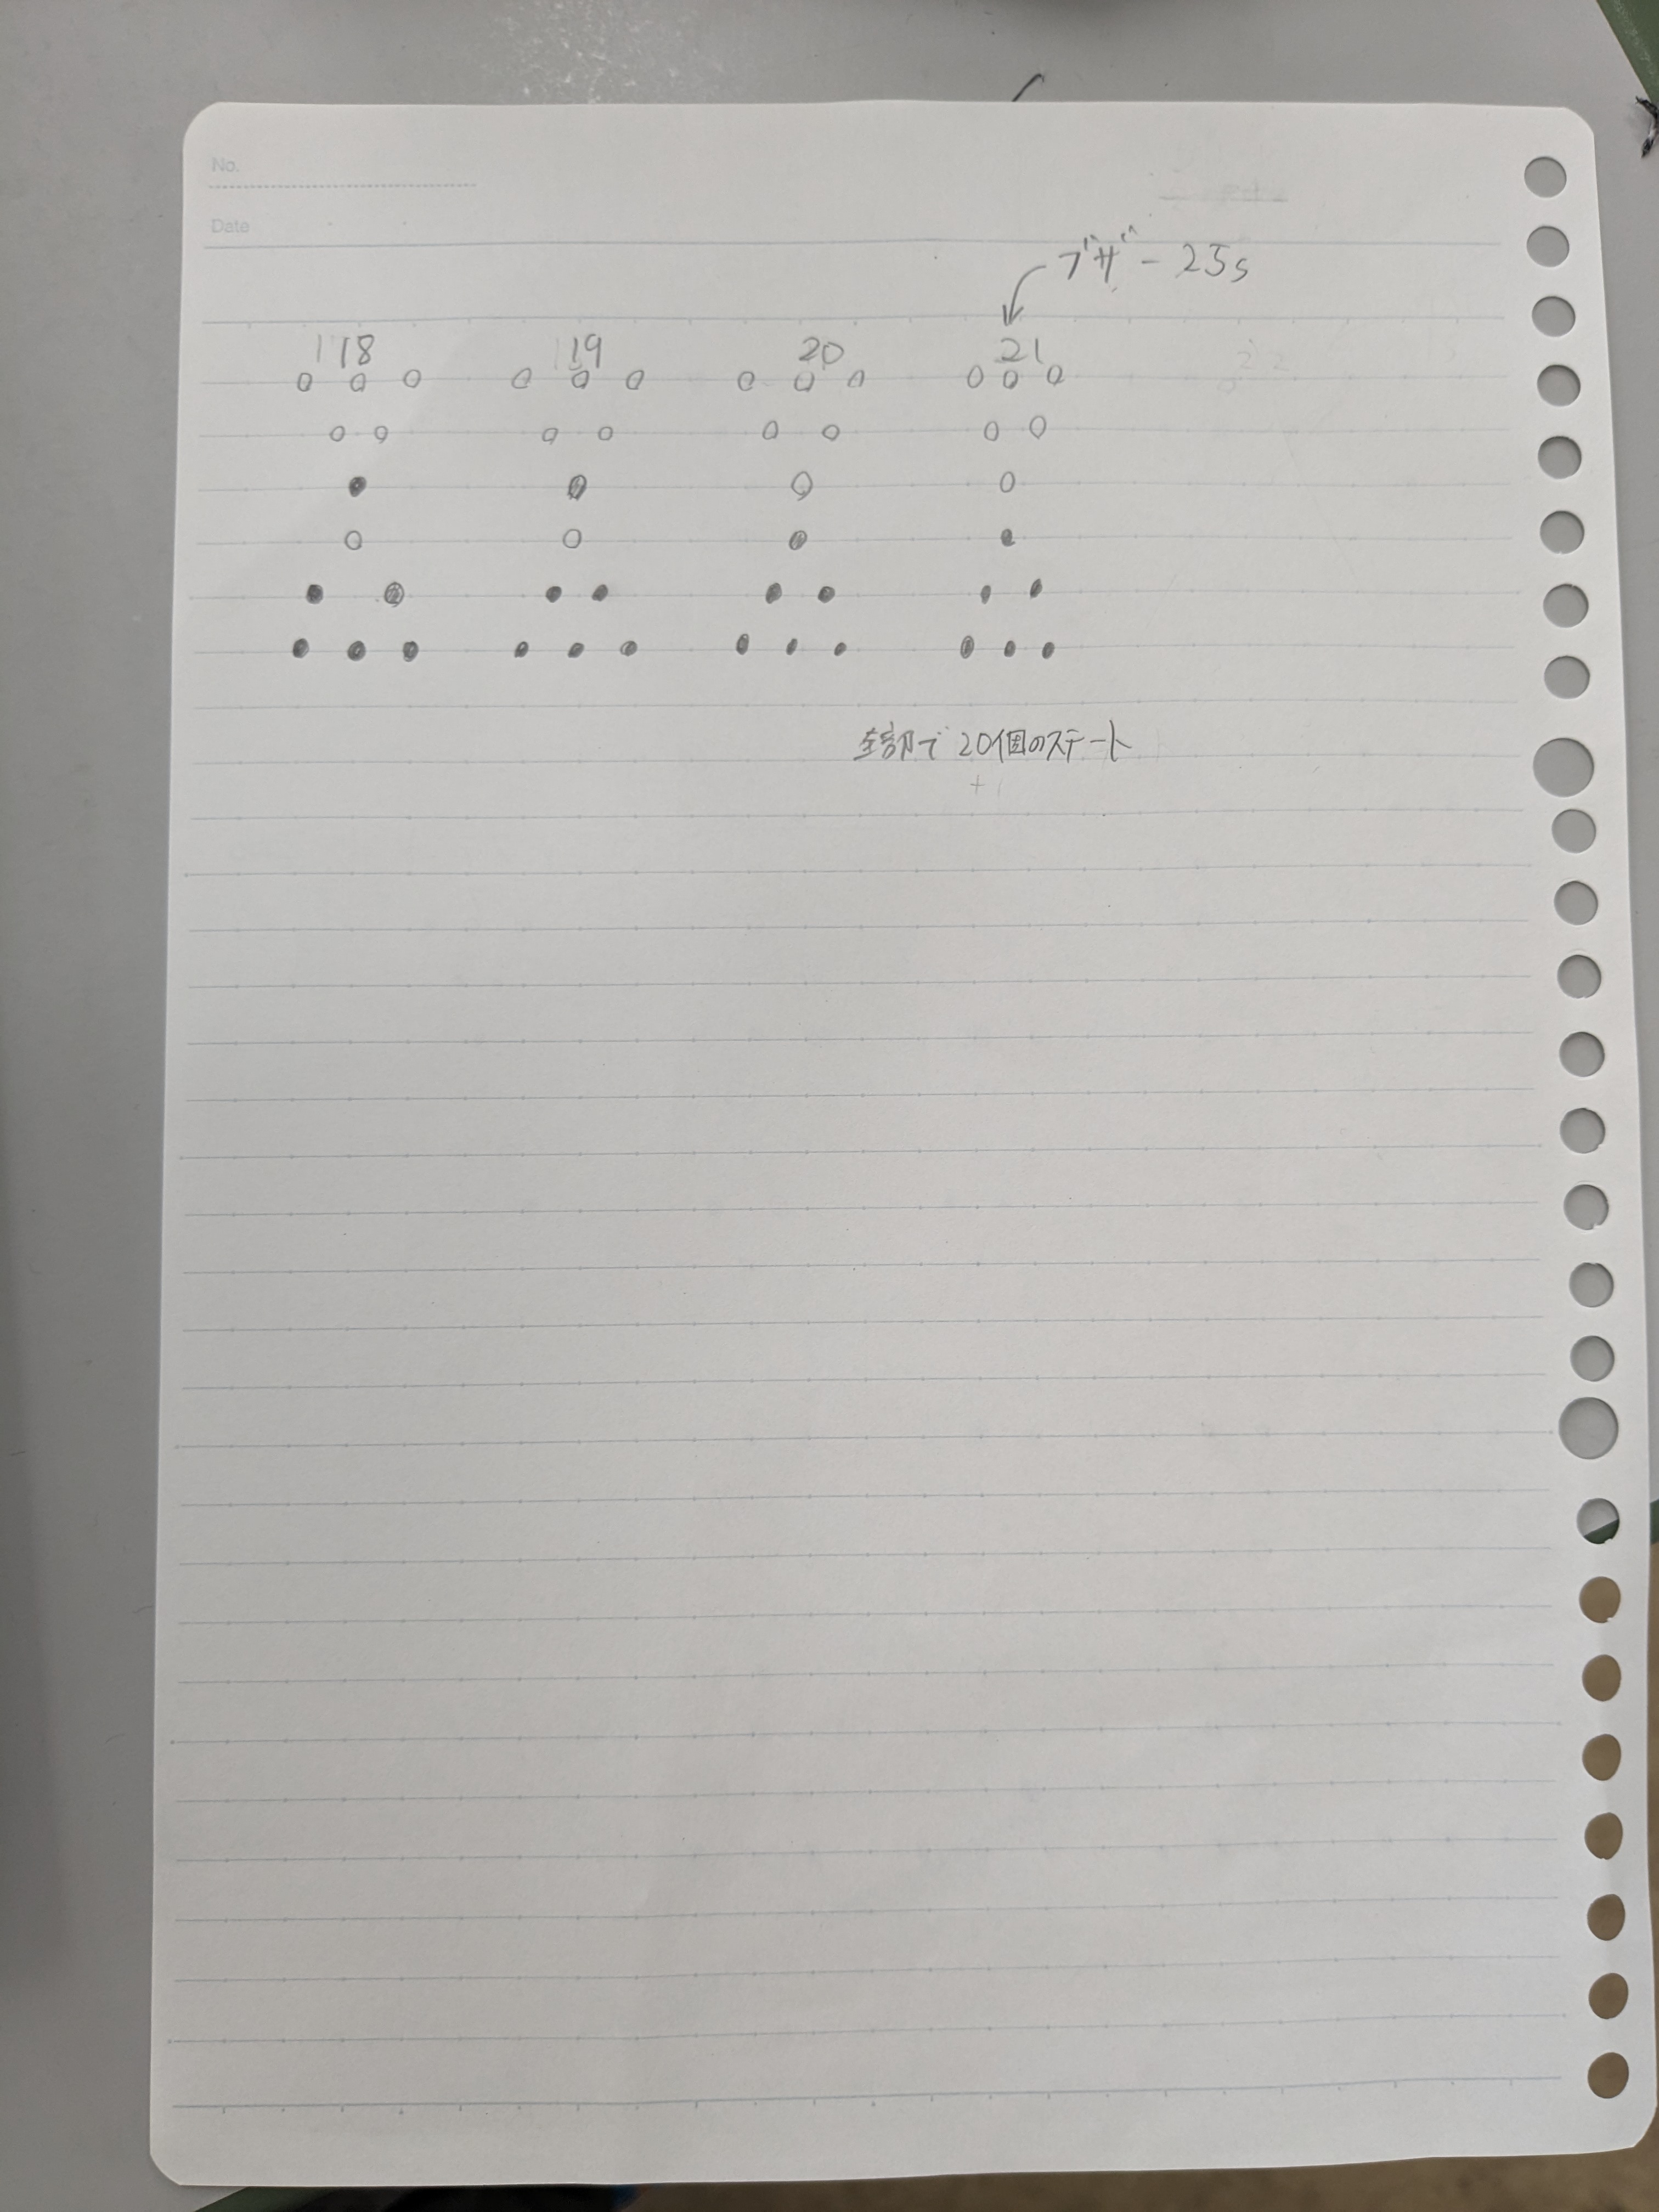 No.
Date
ブザー 25s
18 19 20 21
全部で 20個のステート